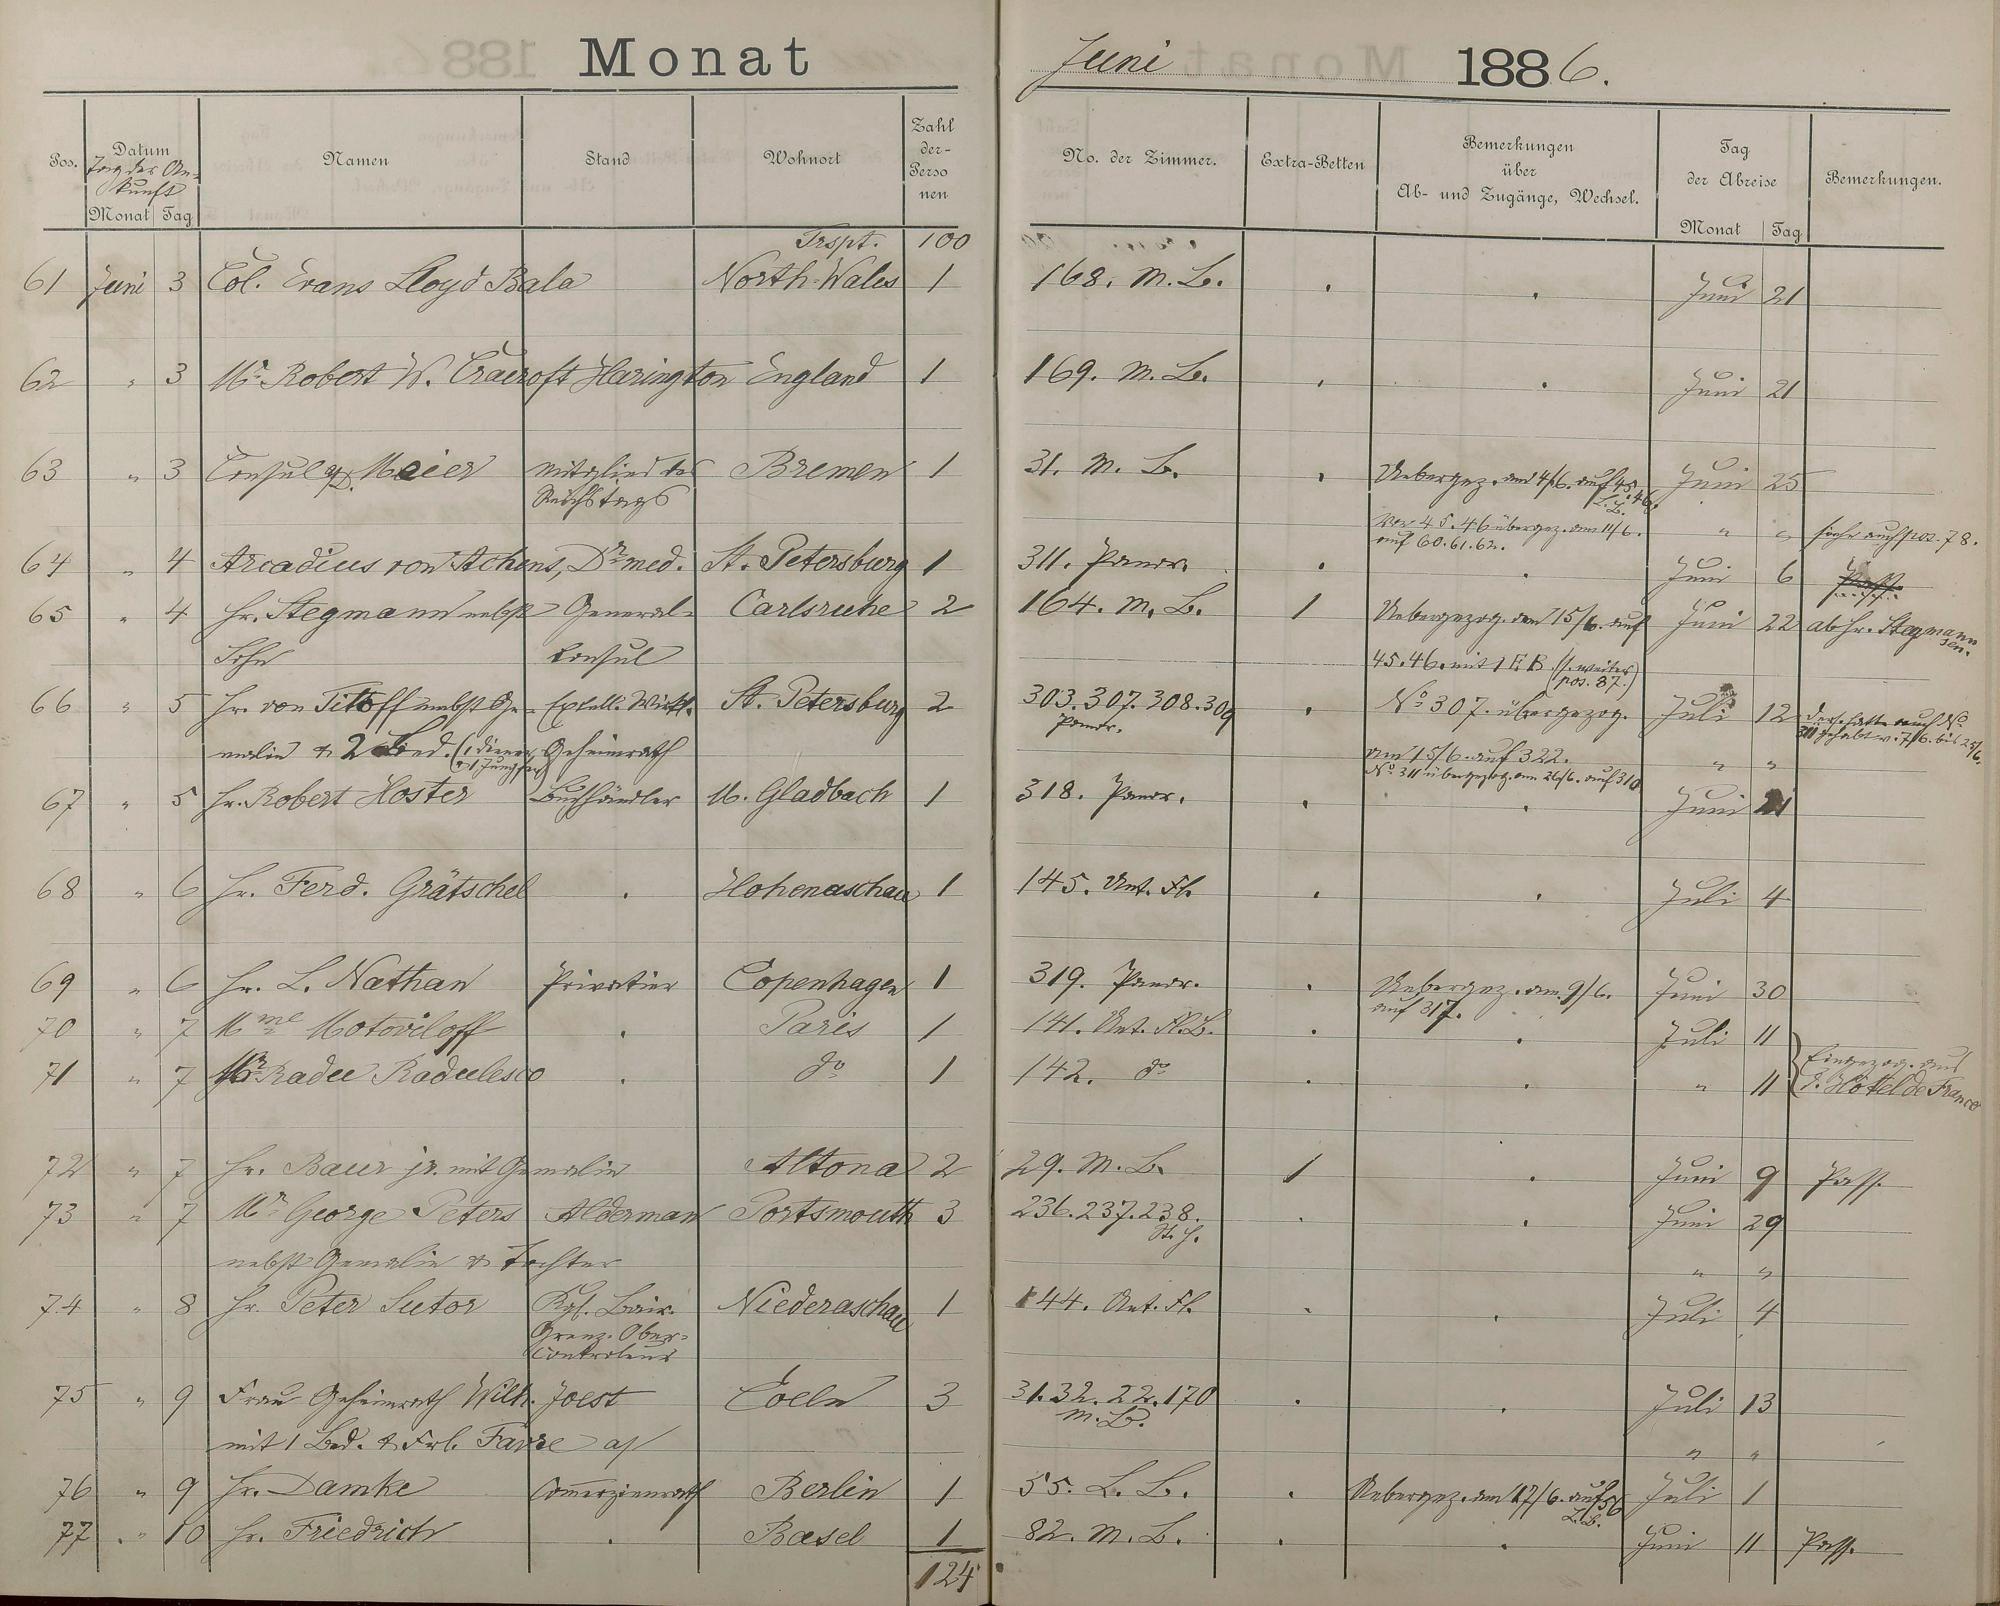 Monat Juni 1886.
Pos. Datum Namen Stand Wohnort Zahl der Personen No. der Zimmer. Extra-Betten Bemerkungen über Ab- und Zugänge, Wechsel. Tag der Abreise Bemerkungen.
Tag der Ankunft
Monat Tag Monat Tag
Trspt. 100
61 Juni 3 Col. Evans Lloyd Bala North-Wales 1 168. M. B. Juni 21
62 " 3 Mr. Robert W. Cracroft Harington England 1 169. M. B. Juni 21
63 " 3 Consul Meier Mitglied des Bremen 1 31. M. B. Uebergez. am 4/6. auf 45. 46. L. B. Juni 25
Reichstags Von 45. 46 übergez. am 11/6. auf 60. 61. 62. " " siehe auch pos. 78.
64 " 4 Arcadius von Achens, Dr. med. St. Petersburg 1 311. Panor. Juni 6
65 " 4 Hr. Stegmann nebst General- Carlsruhe 2 164. M. B. 1 Uebergezog. am 15/6. auf Juni 22 ab Hr. Stegmann sen.
Sohn Consul 45. 46. mit 1 E B. (s. weiter pos. 87.)
66 " 5 Hr. von Titoff nebst Ge- Excell. Wirkl. St. Petersburg 2 303. 307. 308. 309 Panor. No 307. übergezog. Juli 12 ders. hatte auch No. 311 gehabt v. 7/6. bis 25/6.
malin & 2 Bed. (1 Diener & 1 Jungfer) Geheimrath am 15/6. auf 322. " "
No 311 übergezog. am 26/6. auf 310
67 " 5 Hr. Robert Hoster Buchhändler M. Gladbach 1 318. Panor. Juni 21
68 " 6 Hr. Ferd. Grätschel Hohenaschau 1 145. Unt. Fl. Juli 4
69 " 6 Hr. L. Nathan Privatier Copenhagen 1 319. Panor. Uebergez. am 9/6. auf 317. Juni 30
70 " 7 Mme Motoviloff Paris 1 141. Unt. Fl. B. Juli 11
71 " 7 Mr. Radu Radulesco do 1 142. do " 11 Eingezog. aus d. Hôtel de France
72 " 7 Hr. Baur jr. mit Gemalin Altona 2 29. M. B. 1 Juni 9 Pass.
73 " 7 Mr. George Peters Alderman Portsmouth 3 236. 237. 238. St. H. Juni 29
nebst Gemalin & Tochter " "
74 " 8 Hr. Peter Sutor Kgl. Bair. Niederaschau 1 144. Unt. Fl. Juli 4
Grenz-Ober-
Controleur
75 " 9 Frau Geheimrath Wilh. Joest Coeln 3 31. 32. 22. 170 M. B. Juli 13
mit 1 Bed. & Frl. Favre " "
76 " 9 Hr. Damke Commerzienrath Berlin 1 55. L. B. Uebergez. am 17/6. auf 56 L. B. Juli 1
77 " 10 Hr. Friedrich Basel 1 82. M. B. Juni 11 Pass.
124